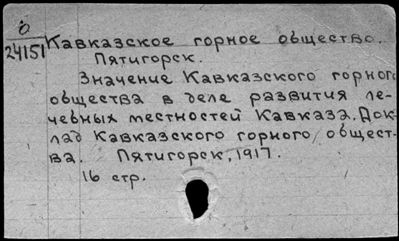 0
24151
Кавказское горное общество.
Пятигорск.
Значение Кавказского горного
общества в деле развития ле-
чебных местностей Кавказа. Док-
лад Кавказского горного общест-
ва. Пятигорск, 1917.
16 стр.